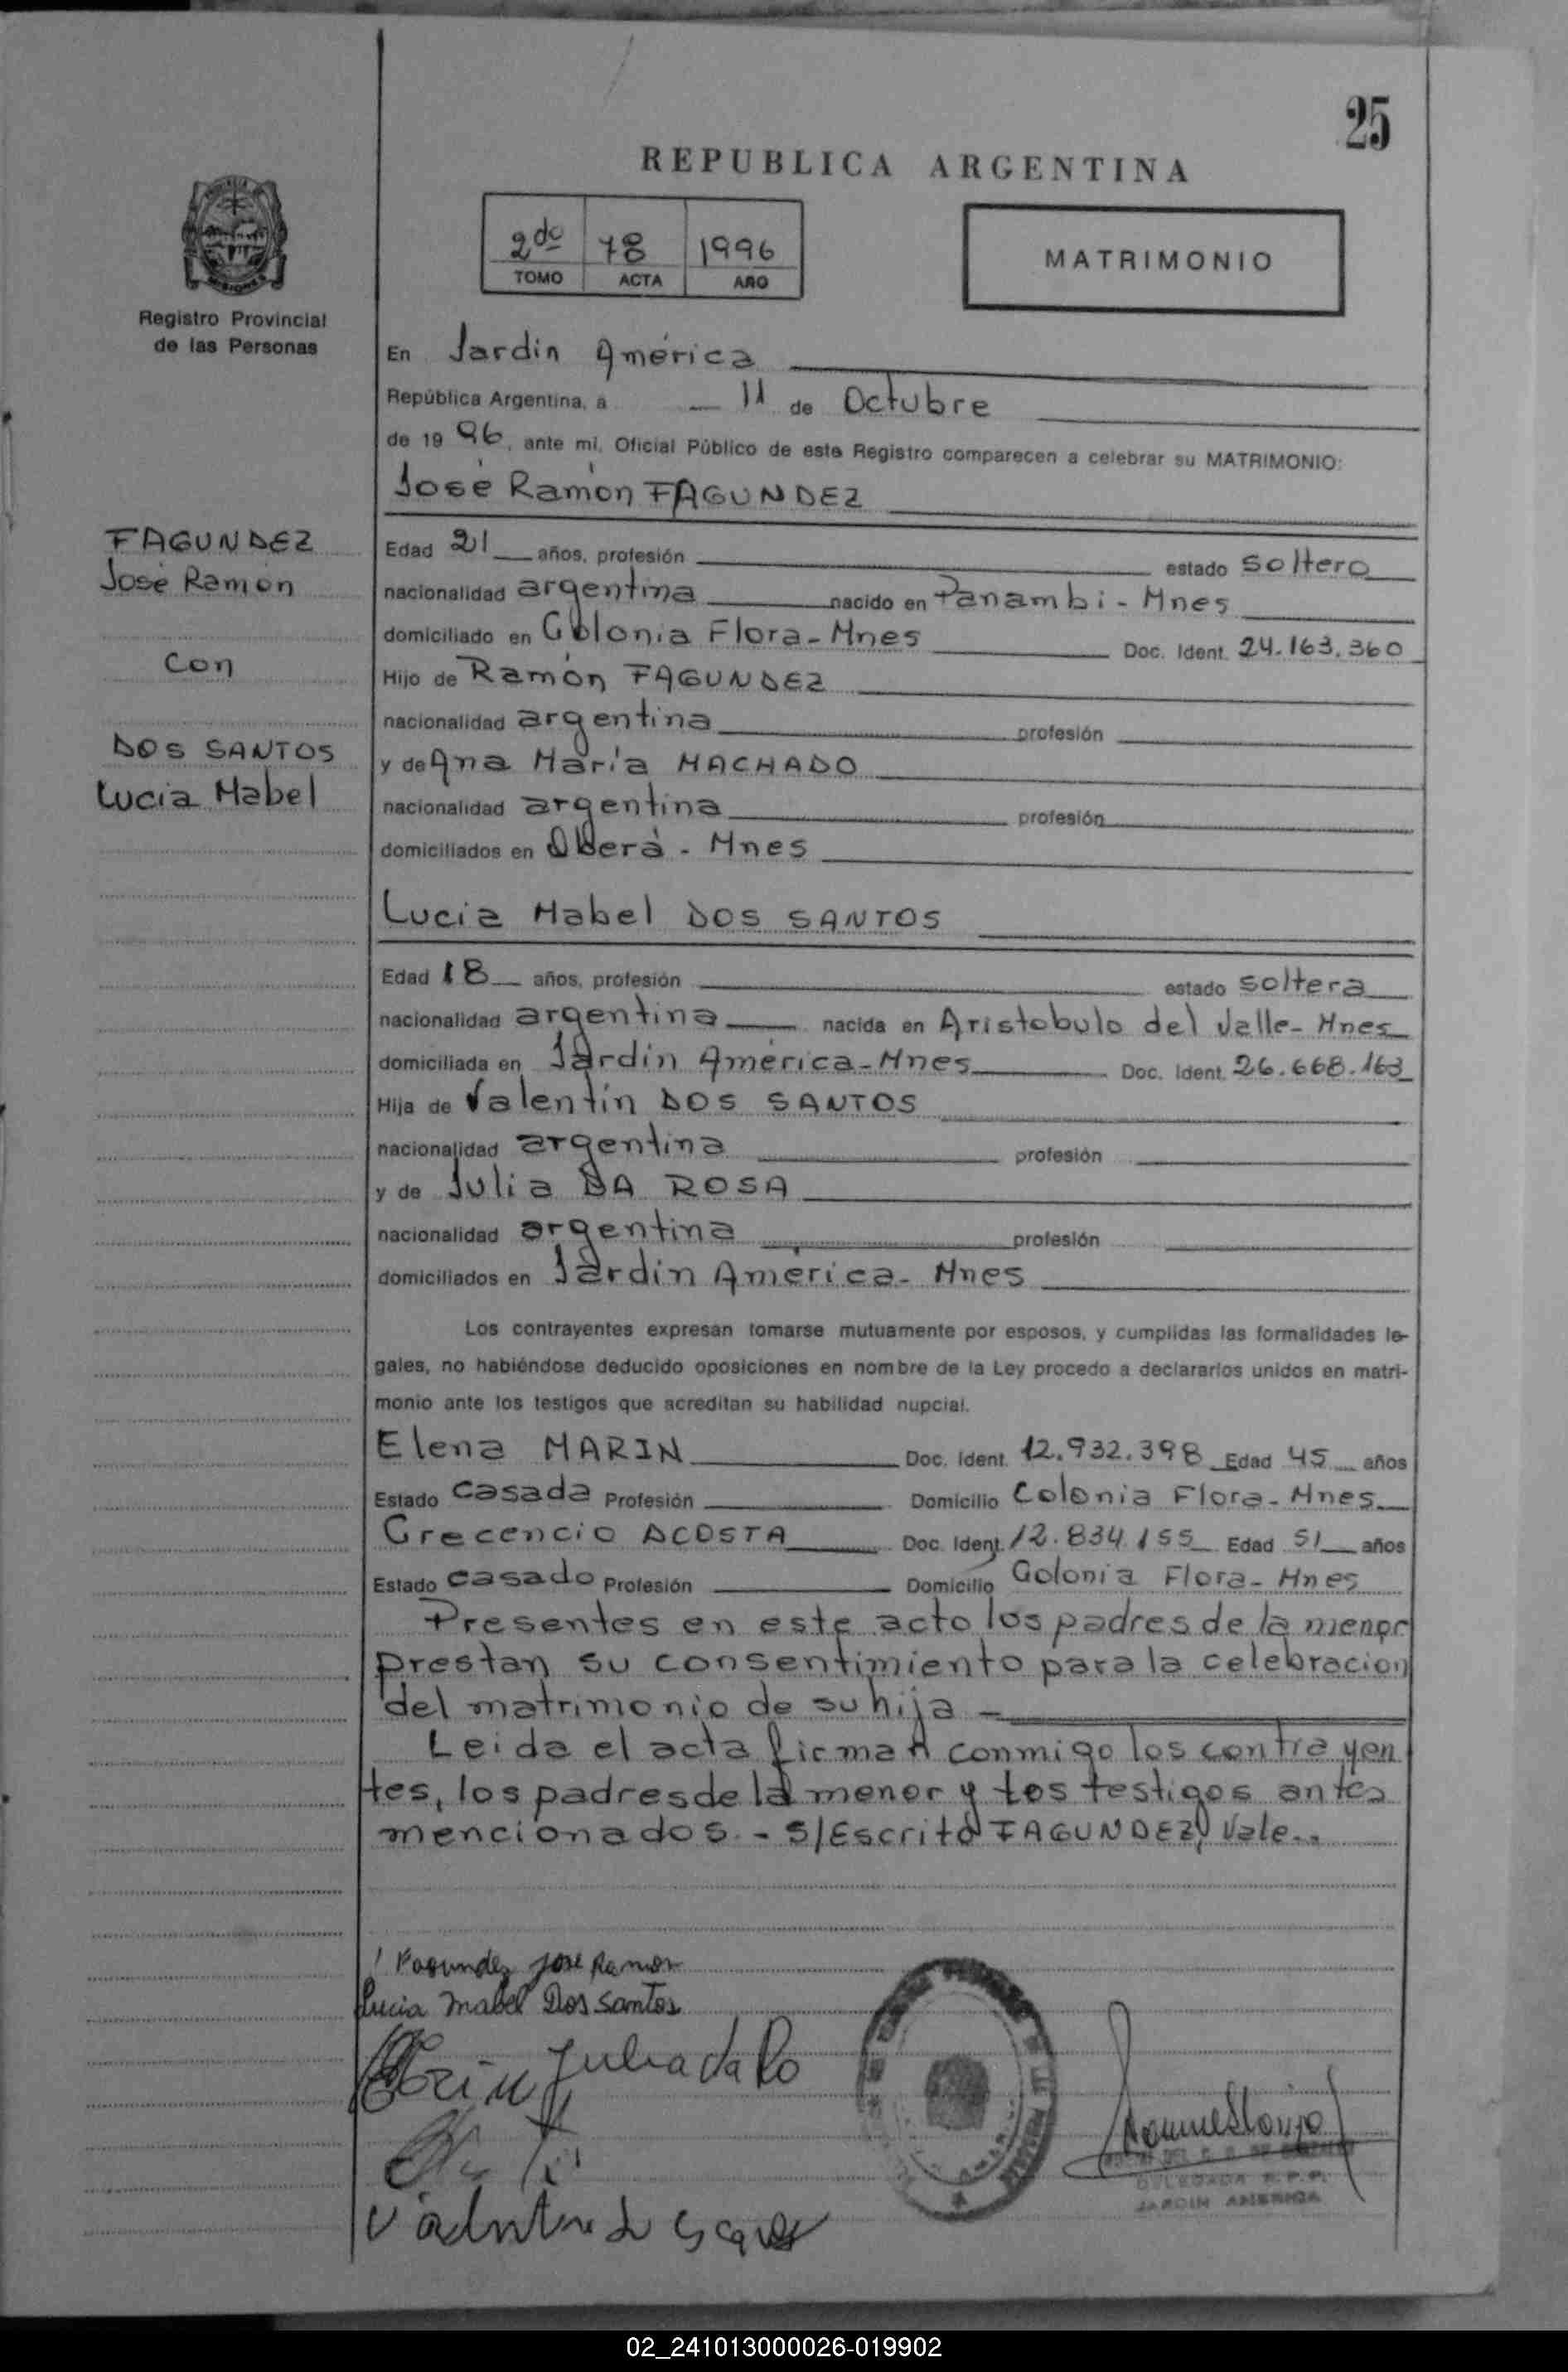 25
REPUBLICA ARGENTINA
2do 78 1996
TOMO ACTA AÑO
MATRIMONIO
Registro Provincial
de las Personas
En Jardin América
República Argentina, a 11 de Octubre
de 1996, ante mi, Oficial Público de este Registro comparecen a celebrar su MATRIMONIO:
José Ramón FAGUNDEZ
FAGUNDEZ
José Ramón
con
DOS SANTOS
Lucia Mabel
Edad 21 años, profesión estado soltero
nacionalidad argentina nacido en Panambi - Mnes
domiciliado en Colonia Flora - Mnes Doc. Ident. 24.163.360
Hijo de Ramón FAGUNDEZ
nacionalidad argentina profesión
y de Ana María MACHADO
nacionalidad argentina profesión
domiciliados en Oberá - Mnes
Lucia Mabel DOS SANTOS
Edad 18 años, profesión estado soltera
nacionalidad argentina nacida en Aristobulo del Valle - Mnes
domiciliada en Jardín América - Mnes Doc. Ident. 26.668.163
Hija de Valentín DOS SANTOS
nacionalidad argentina profesión
y de Julia DA ROSA
nacionalidad argentina profesión
domiciliados en Jardin América - Mnes
Los contrayentes expresan tomarse mutuamente por esposos, y cumplidas las formalidades le-
gales, no habiéndose deducido oposiciones en nombre de la Ley procedo a declararlos unidos en matri-
monio ante los testigos que acreditan su habilidad nupcial.
Elena MARIN Doc. Ident. 12.932.398 Edad 45 años
Estado casada Profesión Domicilio Colonia Flora - Mnes
Crecencio ACOSTA Doc. Ident. 12.834.155 Edad 51 años
Estado casado Profesión Domicilio Colonia Flora - Mnes
Presentes en este acto los padres de la menor
prestan su consentimiento para la celebracion
del matrimonio de su hija -
Leida el acta firman conmigo los contrayen
tes, los padres de la menor y los testigos antes
mencionados. - S/Escrito FAGUNDEZ, Vale..
Fagundez José Ramon
Lucia Mabel Dos Santos
Julia da Ro
DELEGADA R.P.P.
JARDIN AMERICA
02_241013000026-019902